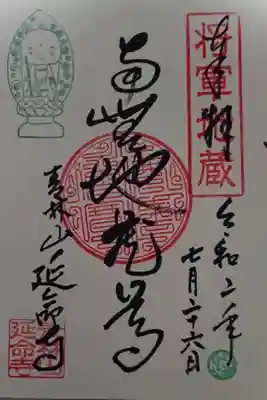 将軍地蔵
奉拝
令和二年
七月二十六日
南無地蔵尊
林山 延命寺